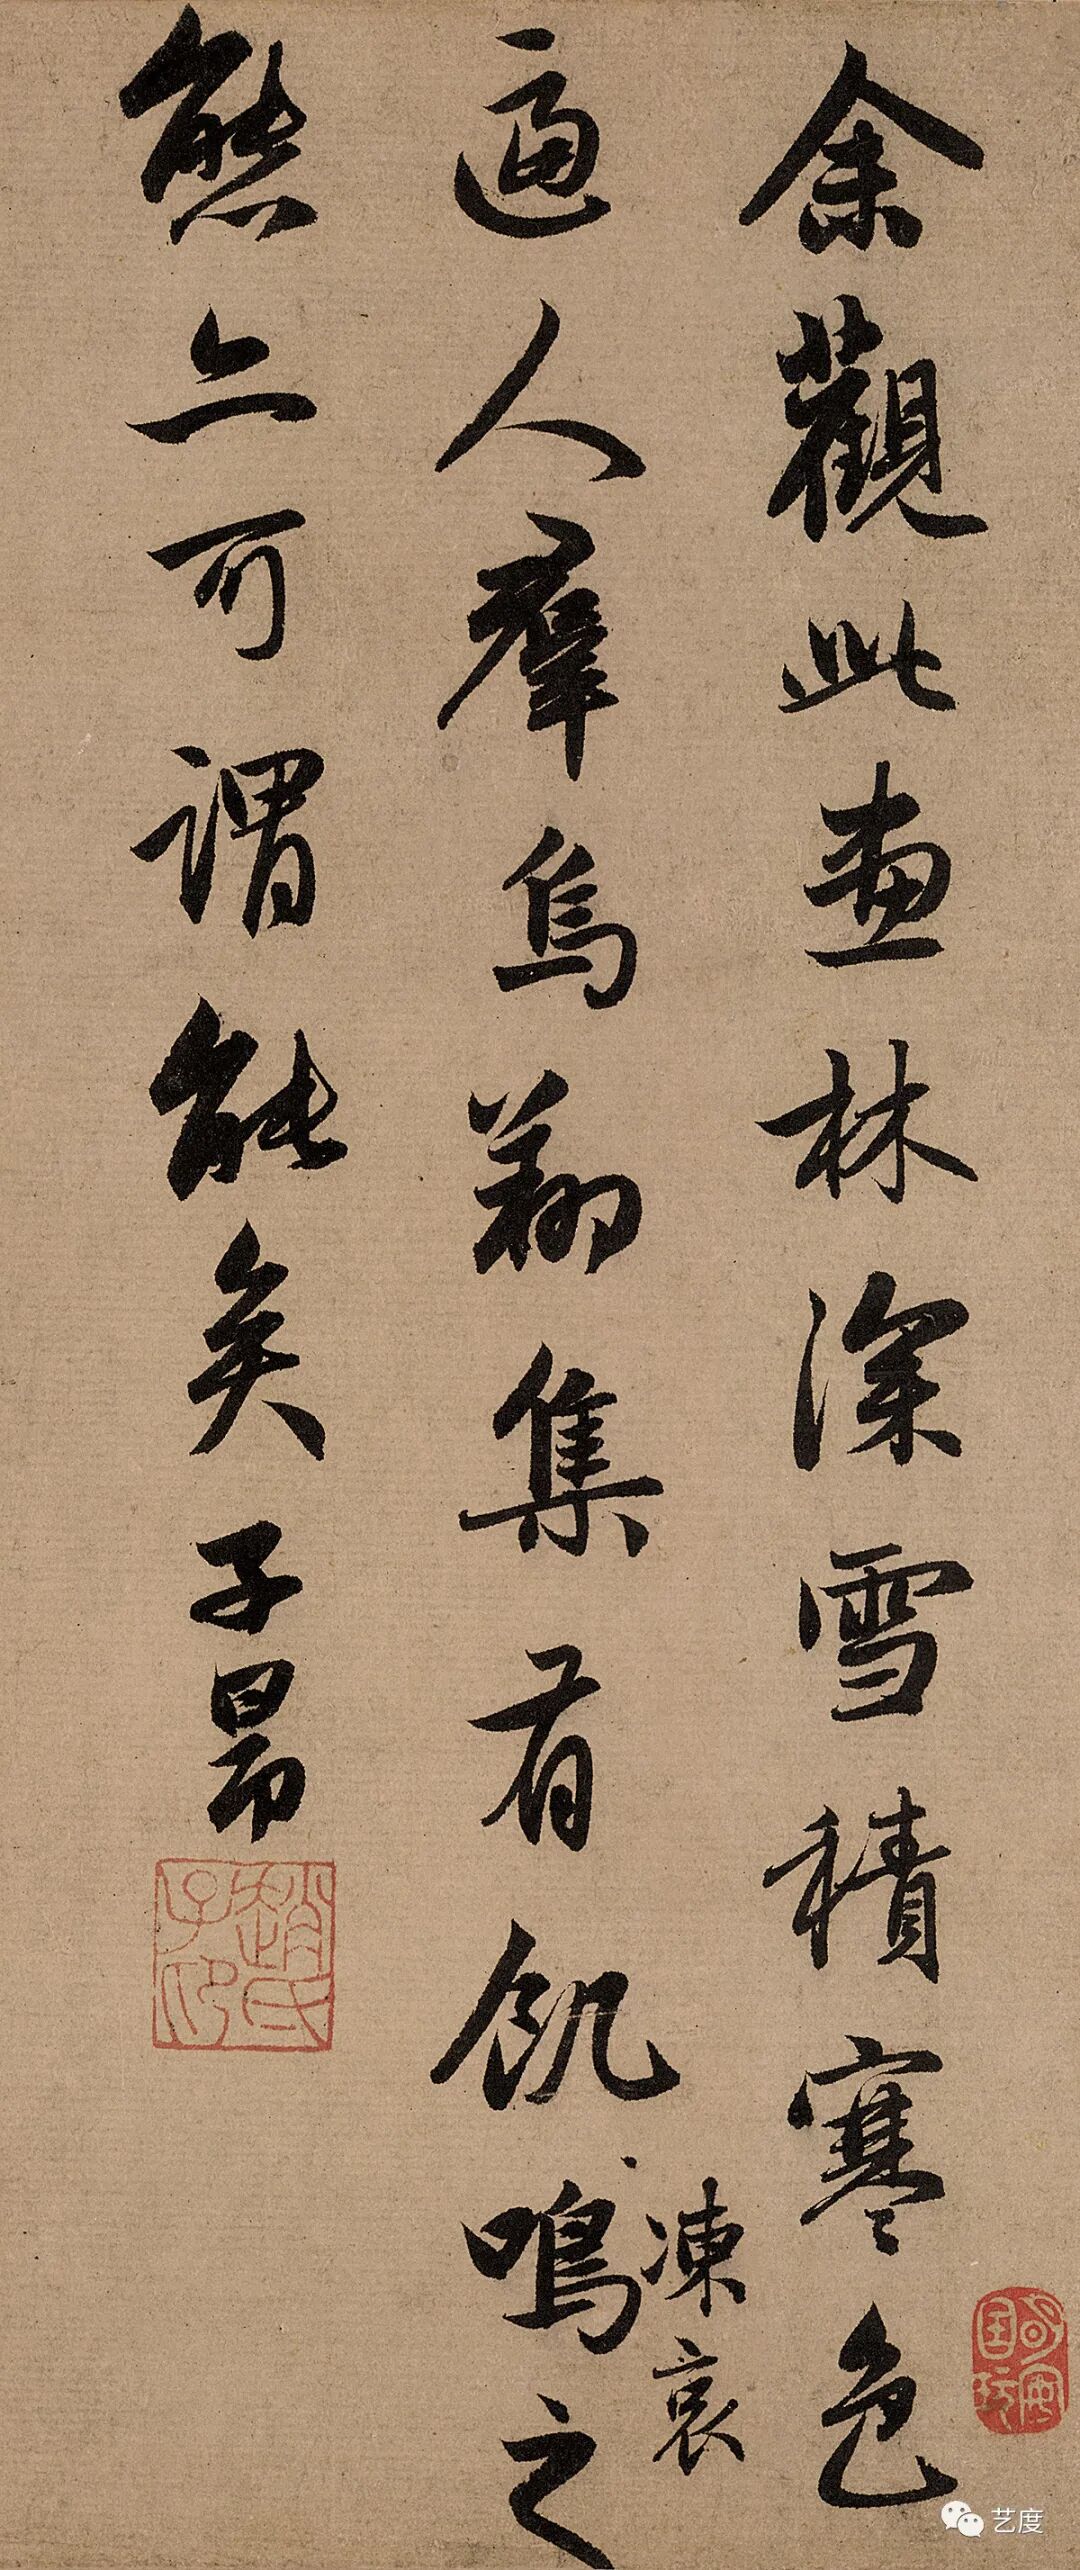 余觀此畫林深雪積寒色
逼人羣烏翔集有飢鳴之
凍哀
態亦可謂能矣子昂
趙氏子印
艺度